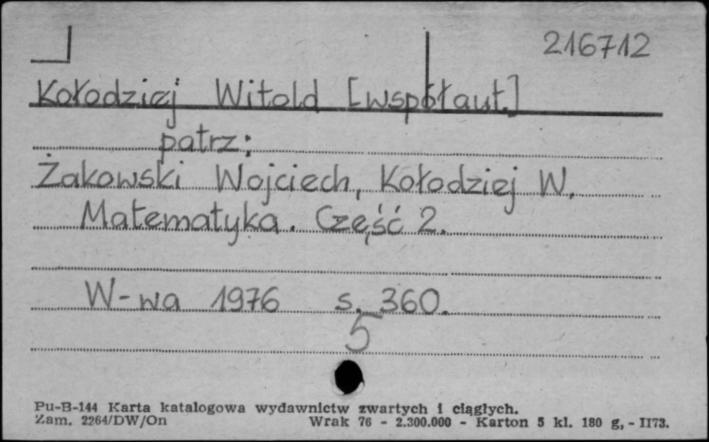 216712
Kołodziej Witold [współaut.]
patrz:
Żakowski Wojciech, Kołodziej W.
Matematyka. Część 2.
W-wa 1976 s. 360.
5
Pu-B-144 Karta katalogowa wydawnictw zwartych i ciągłych.
Zam. 2264/DW/On Wrak 76 - 2.300.000 - Karton 5 kl. 180 g, - II73.